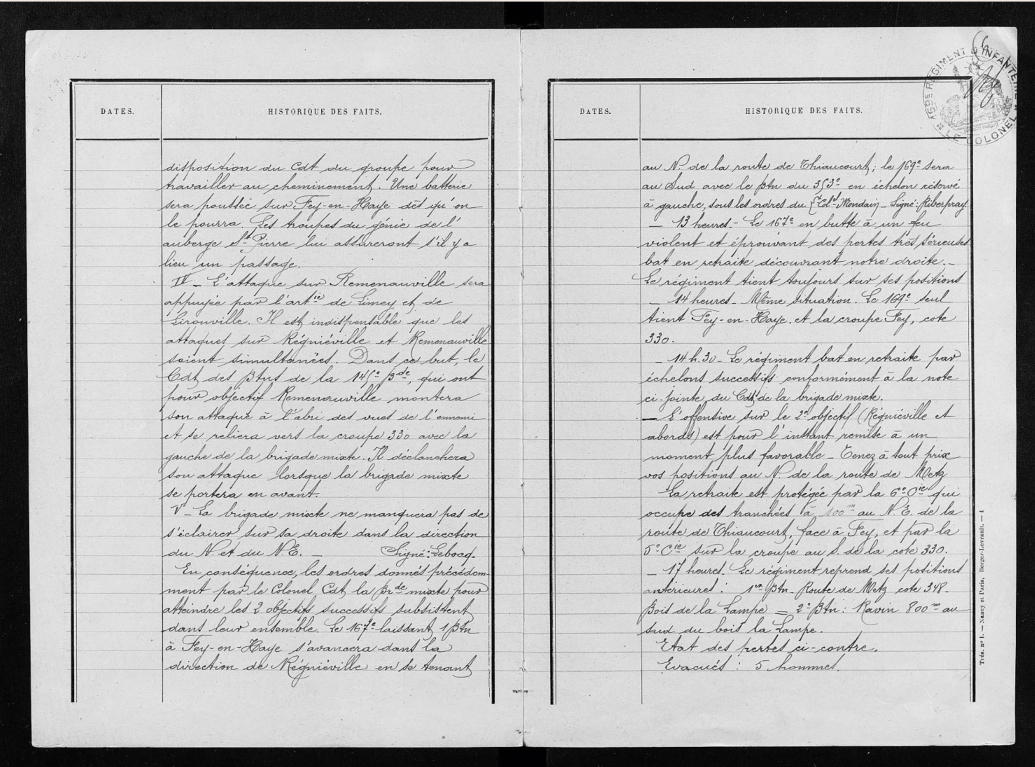 DATES.
HISTORIQUE DES FAITS.
disposition du Cdt du groupe pour
travailler au cheminement. Une batterie
sera poussée sur Fey-en-Haye dès qu'on
le pourra. Les troupes du génie de l'
auberge St Pierre lui assureront s'il y a
lieu un passage.
IV - L'attaque sur Remenauville sera
appuyée par l'artie de Limey et de
Lironville. Il est indispensable que les
attaques sur Régniéville et Remenauville
soient simultanées. Dans ce but, le
Cdt des Btns de la 145e Bde, qui ont
pour objectif Remenauville montera
son attaque à l'abri des vues de l'ennemi
et se reliera vers la croupe 330 avec la
gauche de la brigade mixte. Il déclanchera
son attaque lorsque la brigade mixte
se portera en avant.
V - La brigade mixte ne manquera pas de
s'éclairer sur sa droite dans la direction
du N et du N.E. - Signé: Lebocq.
En conséquence, les ordres donnés précédem-
ment par le Colonel Cdt la Bde mixte pour
atteindre les 2 objectifs successifs subsistent
dans leur ensemble. Le 167e laissant 1 Btn
à Fey-en-Haye s'avancera dans la
direction de Régniéville en se tenant
DATES.
HISTORIQUE DES FAITS.
169e RÉGIMENT D'INFANTERIE
LE COLONEL
au N. de la route de Thiaucourt; le 169e sera
au Sud avec le btn du 353e en échelon réservé
à gauche, sous les ordres du Lt Cel Mondain - Signé: Riberpray
- 13 heures - Le 167e en butte à un feu
violent et éprouvant des pertes très sérieuses
bat en retraite découvrant notre droite. -
Le régiment tient toujours sur ses positions
- 14 heures - Même situation. Le 169e seul
tient Fey-en-Haye et la croupe Fey, cote
330.
- 14 h. 30 - Le régiment bat en retraite par
échelons successifs conformément à la note
ci-jointe du Cdt de la brigade mixte.
- L'offensive sur le 2e objectif (Régniéville et
abords) est pour l'instant remise à un
moment plus favorable - Tenez à tout prix
vos positions au N. de la route de Metz
La retraite est protégée par la 6e Cie qui
occupe des tranchées à 100m au N.E. de la
route de Thiaucourt, face à Fey, et par la
5e Cie sur la croupe au S. de la cote 330.
- 17 heures. Le régiment reprend ses positions
antérieures: 1er Btn - Route de Metz cote 348.
Bois de la Lampe = 2e Btn: Ravin 800m au
sud du bois la Lampe.
Etat des pertes ci-contre.
Evacués: 5 hommes.
Trés. nº 1. — Nancy et Paris, Berger-Levrault. — 4